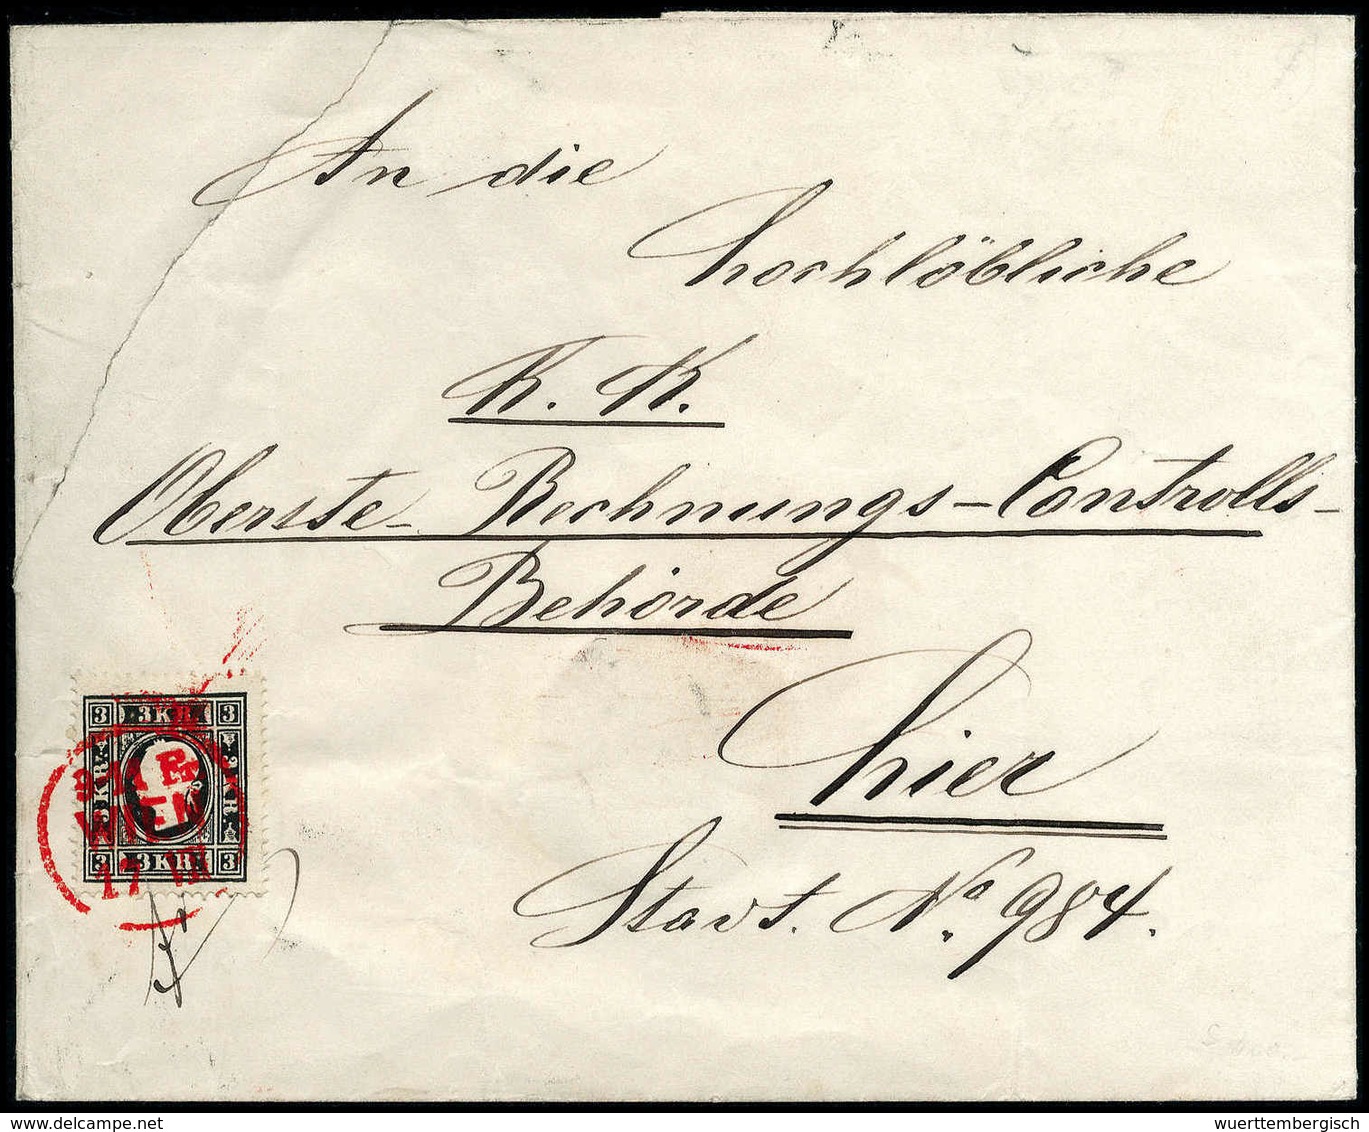 An die
hochlöbliche
K. K.
Oberste Rechnungs-Controlls-
Behörde
hier
Stadt. No. 984.
3 3 KR 3
WIEN
17 VIII
3 3 KR 3
DELCAMPE.NET
wuerttembergisch